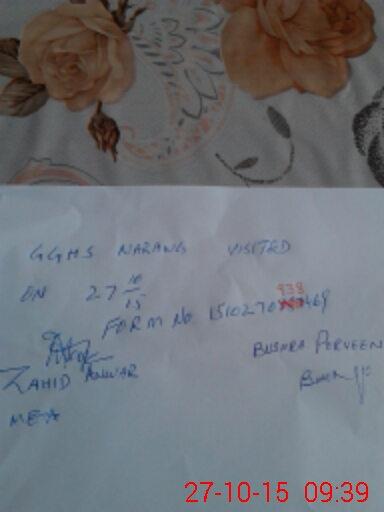 GGHS NARANG VISITED
ON 27 10/15
FORM No. 1510270938469
ZAHID ANWAR
BUSHRA PERVEEN
MEA
27-10-15 09:39